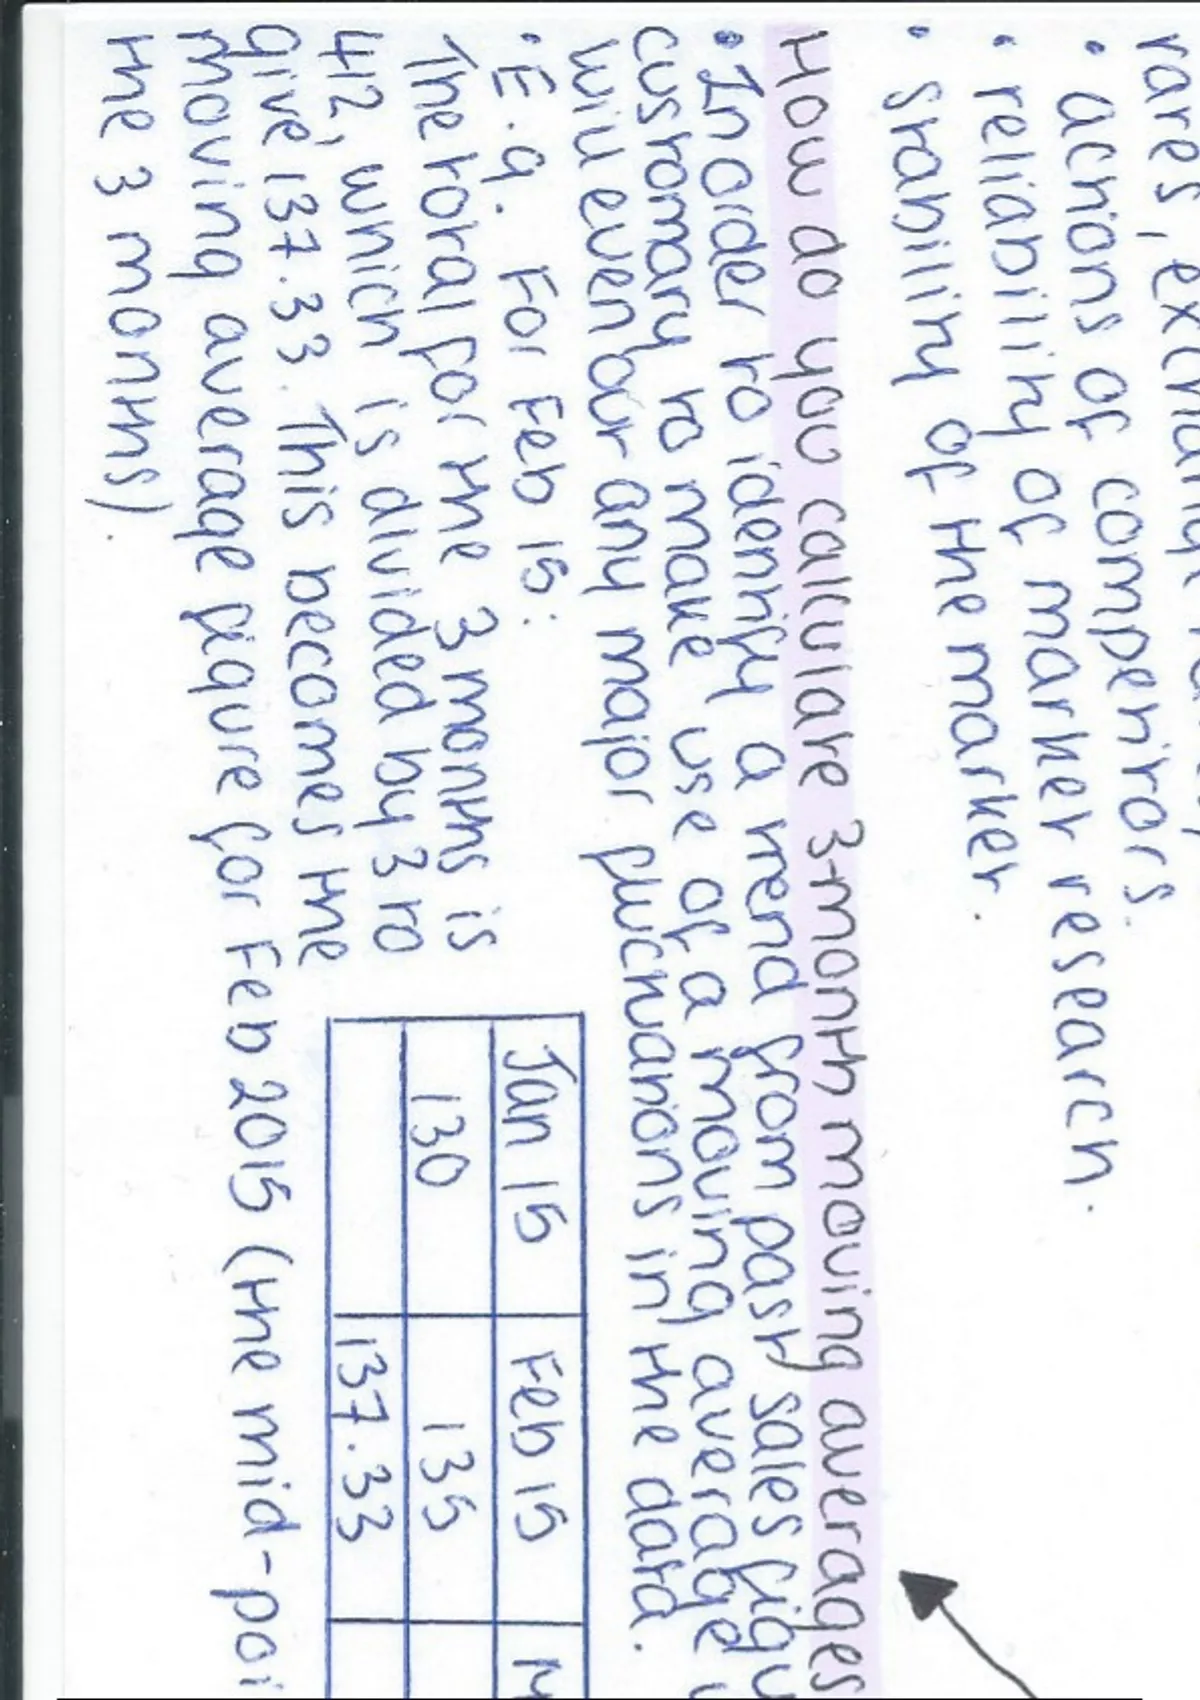 • actions of competitors.
• reliability of market research.
• stability of the market.
How do you calculate 3-month moving averages
• In order to identify a trend from past sales figu
customary to make use of a moving average
will even out any major fluctuations in the data.
• E.g. For Feb 15:
The total for the 3 months is
412, which is divided by 3 to
give 137.33. This becomes the
moving average figure for Feb 2015 (the mid-poi
the 3 months).
Jan 15 Feb 15 M
130 135
137.33